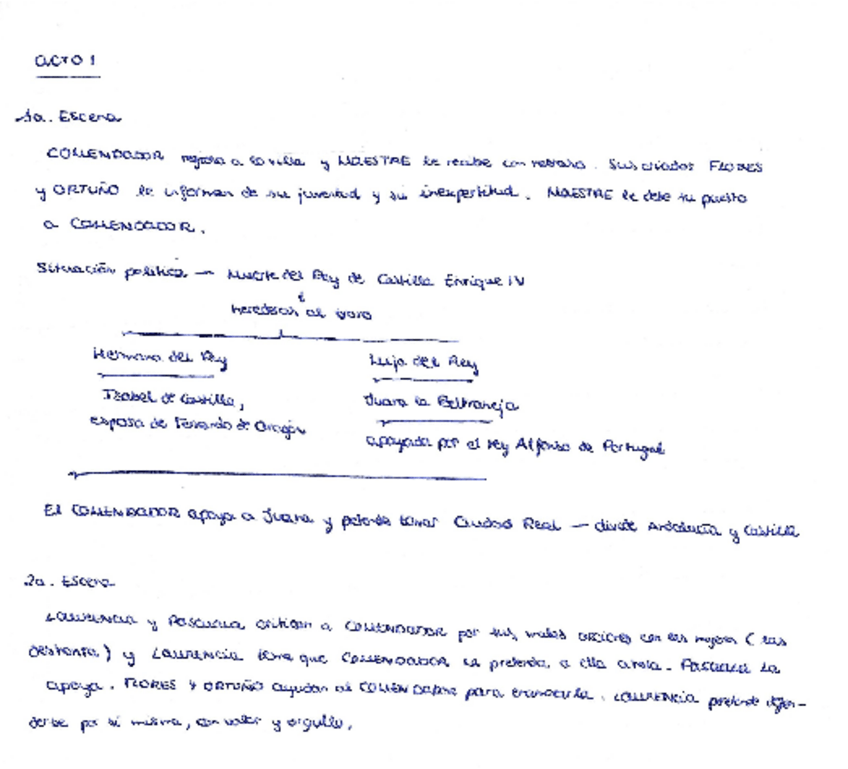 ACTO 1
1a. Escena
COMENDADOR regresa a la villa y MAESTRE le recibe con retraso. Sus criados FLORES
y ORTUÑO le informan de su juventud y su inexpertitud. MAESTRE le debe su puesto
a COMENDADOR.
Situación política — Muerte del Rey de Castilla Enrique IV
herederas al trono
Hermana del Rey Hija del Rey
Isabel de Castilla, Juana la Beltraneja
esposa de Fernando de Aragón apoyada por el rey Alfonso de Portugal
El COMENDADOR apoya a Juana y pretende tomar Ciudad Real — divide Andalucía y Castilla
2a. Escena
LAURENCIA y PASCUALA critican a COMENDADOR por sus malas acciones con las mujeres (las
deshonra) y LAURENCIA teme que COMENDADOR la pretenda a ella ahora. PASCUALA la
apoya. FLORES y ORTUÑO ayudan al COMENDADOR para. LAURENCIA pretende defen-
derse por sí misma, con valor y orgullo.